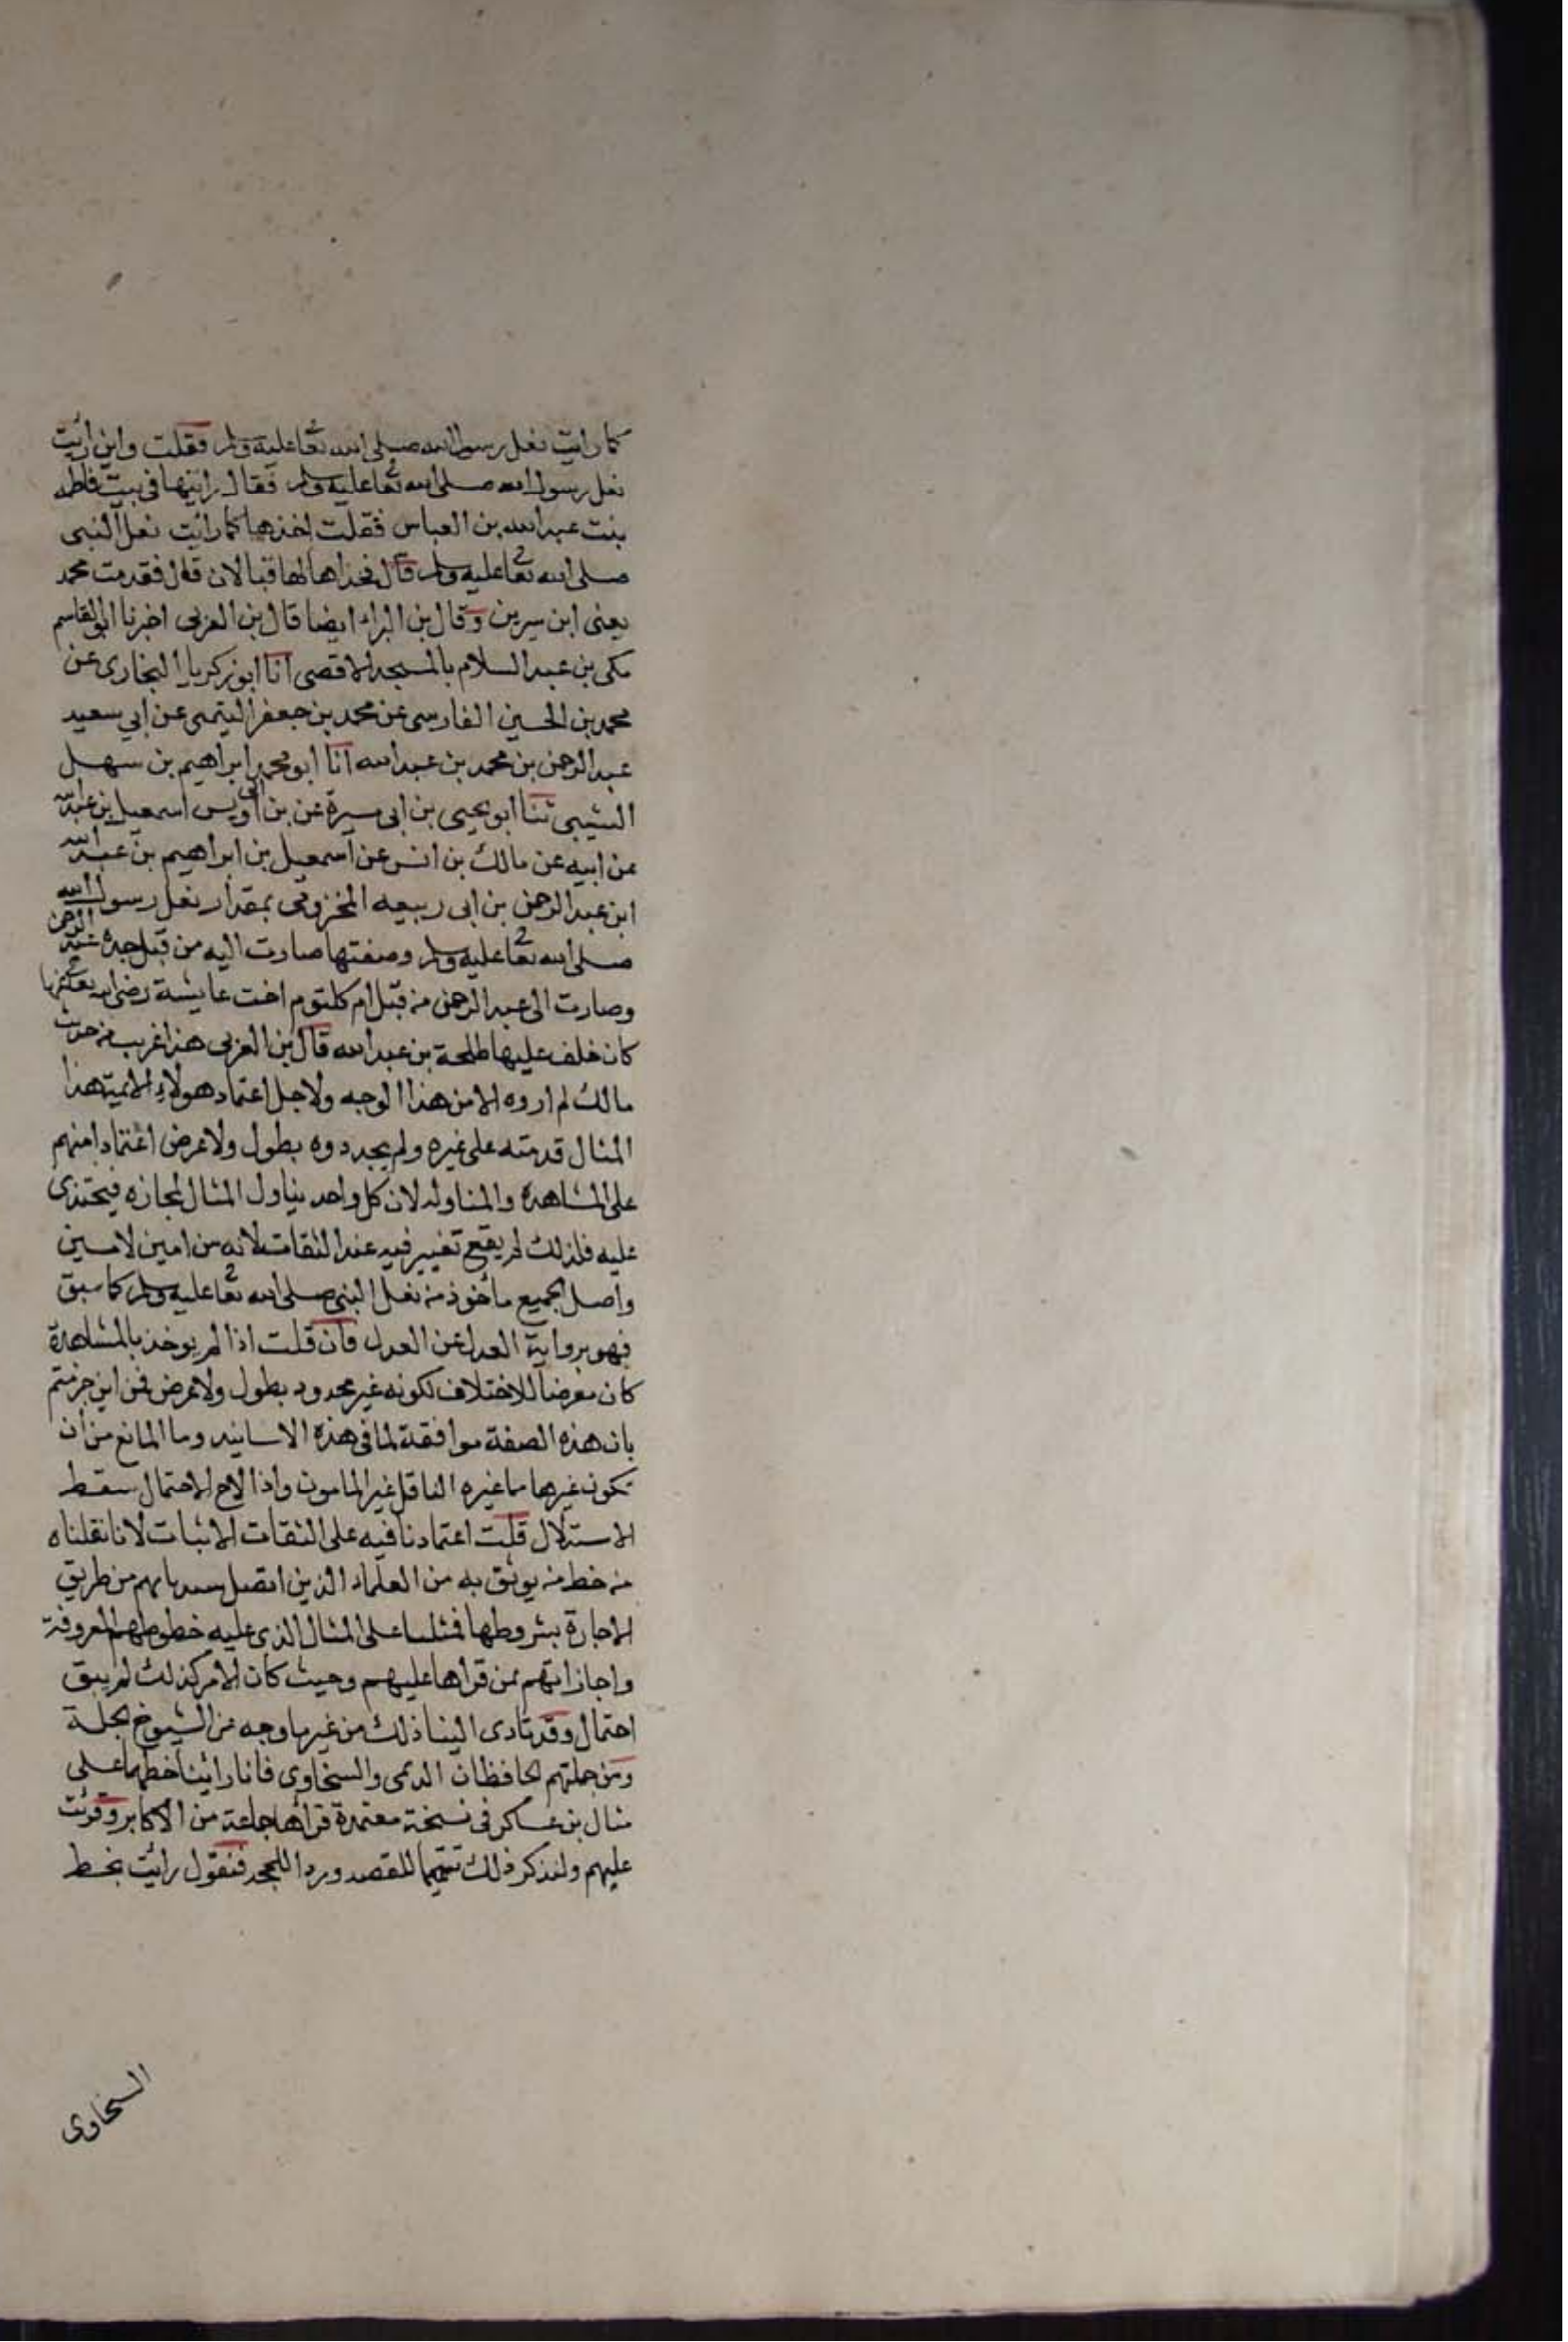 كما رايت نعل رسول الله صلى الله تعا عليه وسلم فقلت واين رايت
نعل رسول الله صلى الله تعا عليه وسلم فقال رايتها فى بيت فاطمه
بنت عبد الله بن العباس فقلت اخذها كما رائت نعل النبى
صلى الله تعا عليه وسلم قال فحذاها لها قبالان قال فقدمت محمد
يعنى ابن سيرين وقال بن البراء ايضا قال بن العربى اخبرنا ابو القاسم
مكى بن عبد السلام بالمسجد الاقصى انا ابو زكريا البخارى عن
محمد بن الحسين الفارسى عن محمد بن جعفر التيمى عن ابي سعيد
عبد الرحمن بن محمد بن عبد الله انا ابو محمد ابراهيم بن سهل
الشيبى ثنا ابو يحيى بن ابى ميسرة عن بن ابى اويس اسمعيل بن عبد الله
عن ابيه عن مالك بن انس عن اسمعيل بن ابراهيم بن عبد الله
ابن عبد الرحمن بن ابى ربيعه المخزومى بمقدار نعل رسول الله
صلى الله تعا عليه وسلم وصفتها صارت اليه من قبل جده عبد الرحمن
وصارت الى عبد الرحمن من قبل ام كلتوم اخت عايشة رضى الله تعا عنها
كان خلف عليها طلحة بن عبد الله قال بن العربى هذا غريب من حديث
مالك لم اروه الا من هذا الوجه ولاجل اعتماد هولاء الائمة هذا
المثال قدمته على غيره ولم يحددوه بطول ولا عرض اعتمادا منهم
على المشاهدة والمناوله لان كل واحد يناول المثال لمجازه فيحتذى
عليه فلذلك لم يقع تغيير فيه عند الثقات لانه من امين لامين
واصل الجميع ماخوذ من نعل النبى صلى الله تعا عليه وسلم كما سبق
فهو برواية العدل عن العدل فان قلت اذا لم يوخذ بالمشاهدة
كان معرضا للاختلاف لكونه غير محدود بطول ولا عرض فمن اين جزمتم
بان هذه الصفة موافقة لما فى هذه الاسانيد وما المانع من أن
تكون غيرها مما غيره الناقل غير المامون واذا لاح الاحتمال سقط
الاستدلال قلت اعتمادنا فيه على الثقات الاثبات لانا نقلناه
من خط من يوثق به من العلماء الذين اتصل سندنا بهم من طريق
الاجازة بشروطها فمثلنا على المثال الذى عليه خطوطهم المعروفة
واجازاتهم لمن قراها عليهم وحيث كان الامر كذلك لم يبق
احتمال وقد تادى الينا ذلك من غير ما وجه عن الشيوخ الجلة
ومن جملتهم الحافظان الديمى والسخاوى فانا رائينا خطهما على
مثال بن عساكر فى نسخة معتمدة قرأها جماعة من الاكابر وقرئت
عليهم ولنذكر ذلك تتميما للقصد وردا للجحد فنقول رائت بخط
السخاوى